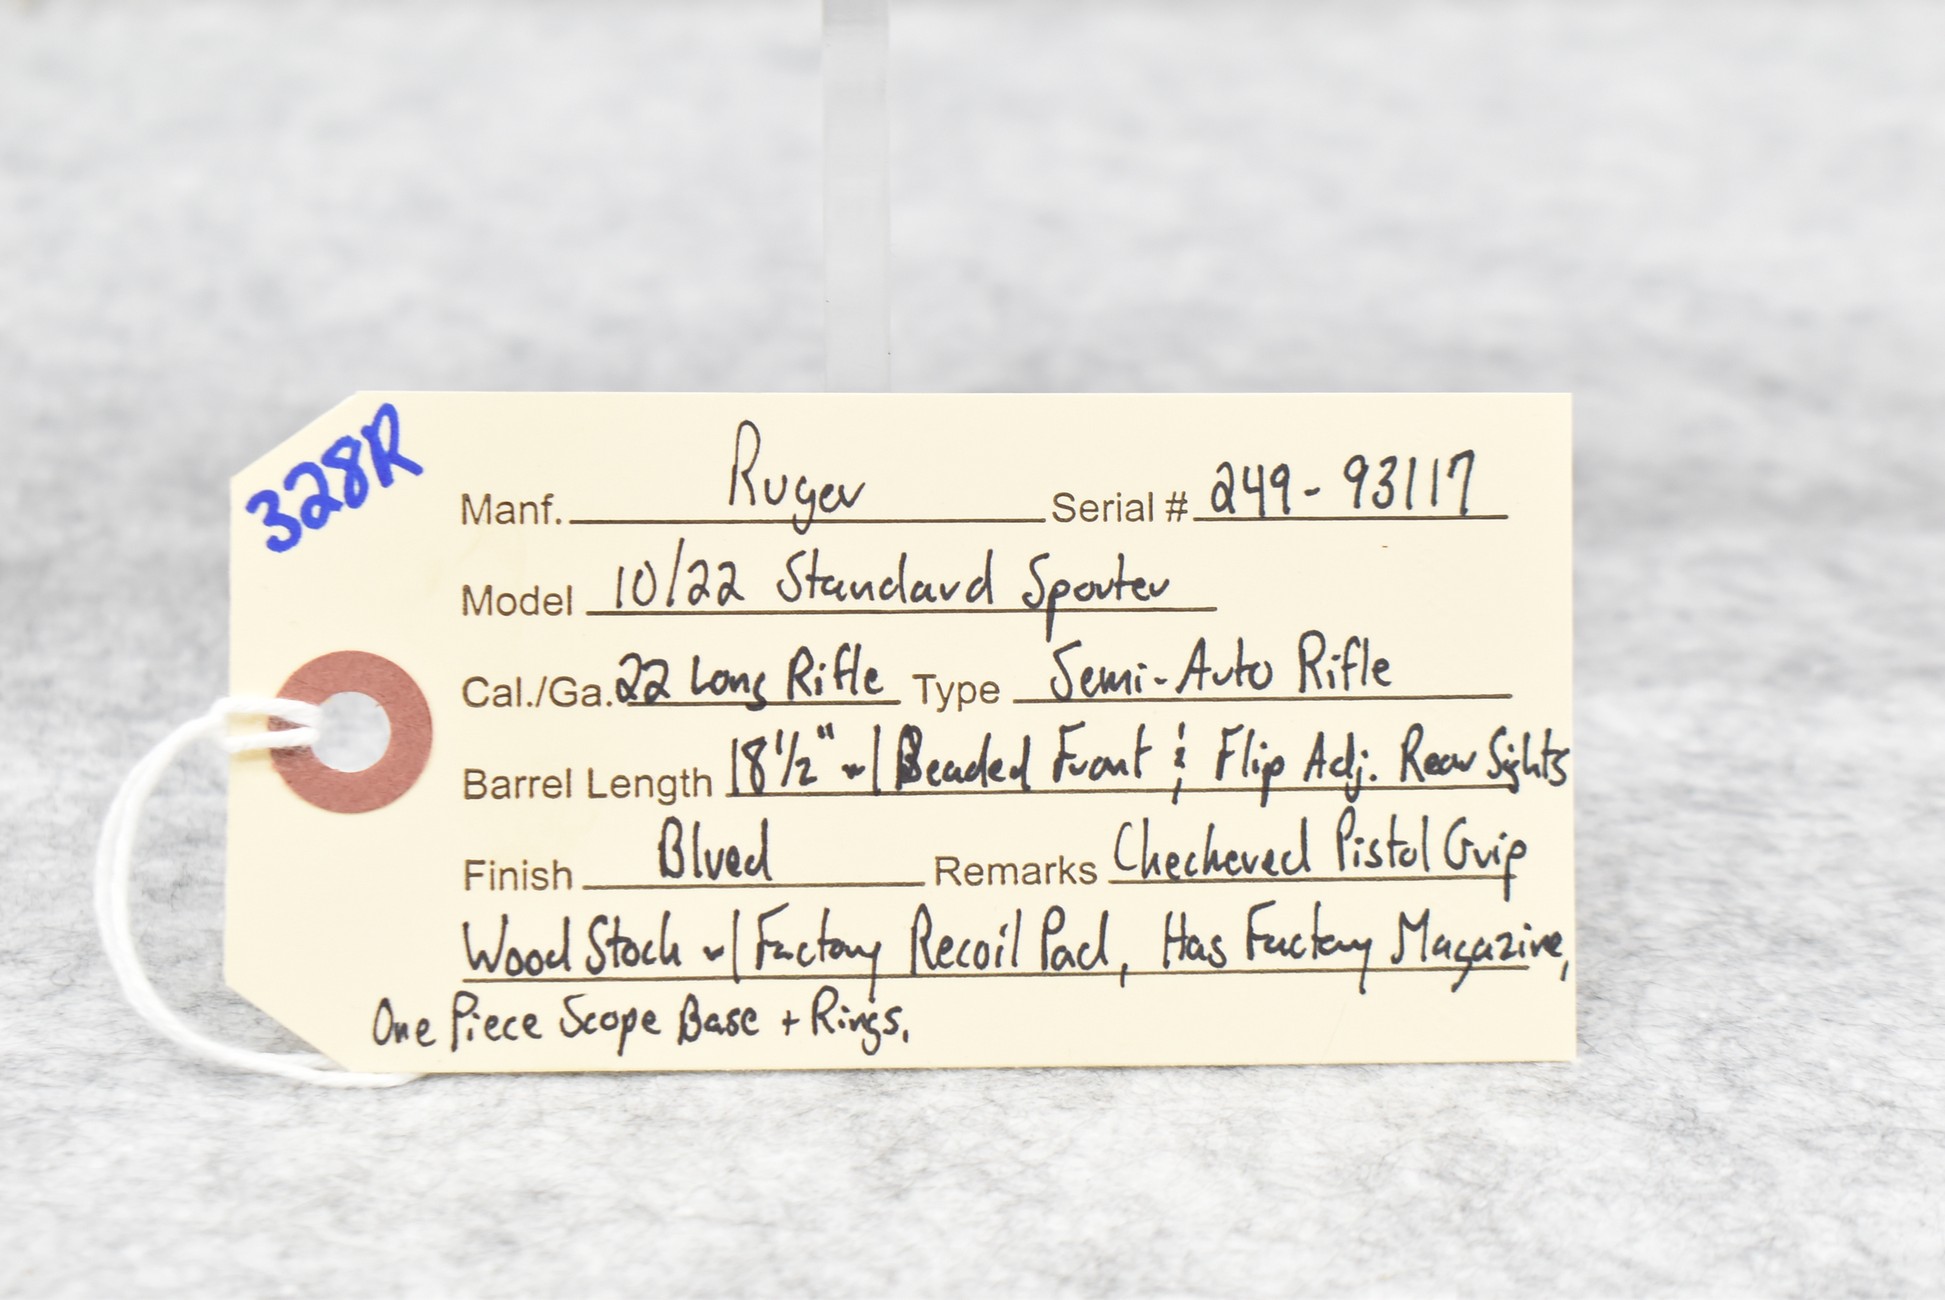 328R
Manf. Ruger Serial # 249-93117
Model 10/22 Standard Sporter
Cal./Ga. 22 Long Rifle Type Semi-Auto Rifle
Barrel Length 18 1/2" w/ Beaded Front & Flip Adj. Rear Sights
Finish Blued Remarks Checkered Pistol Grip
Wood Stock w/ Factory Recoil Pad, Has Factory Magazine,
One Piece Scope Base + Rings.